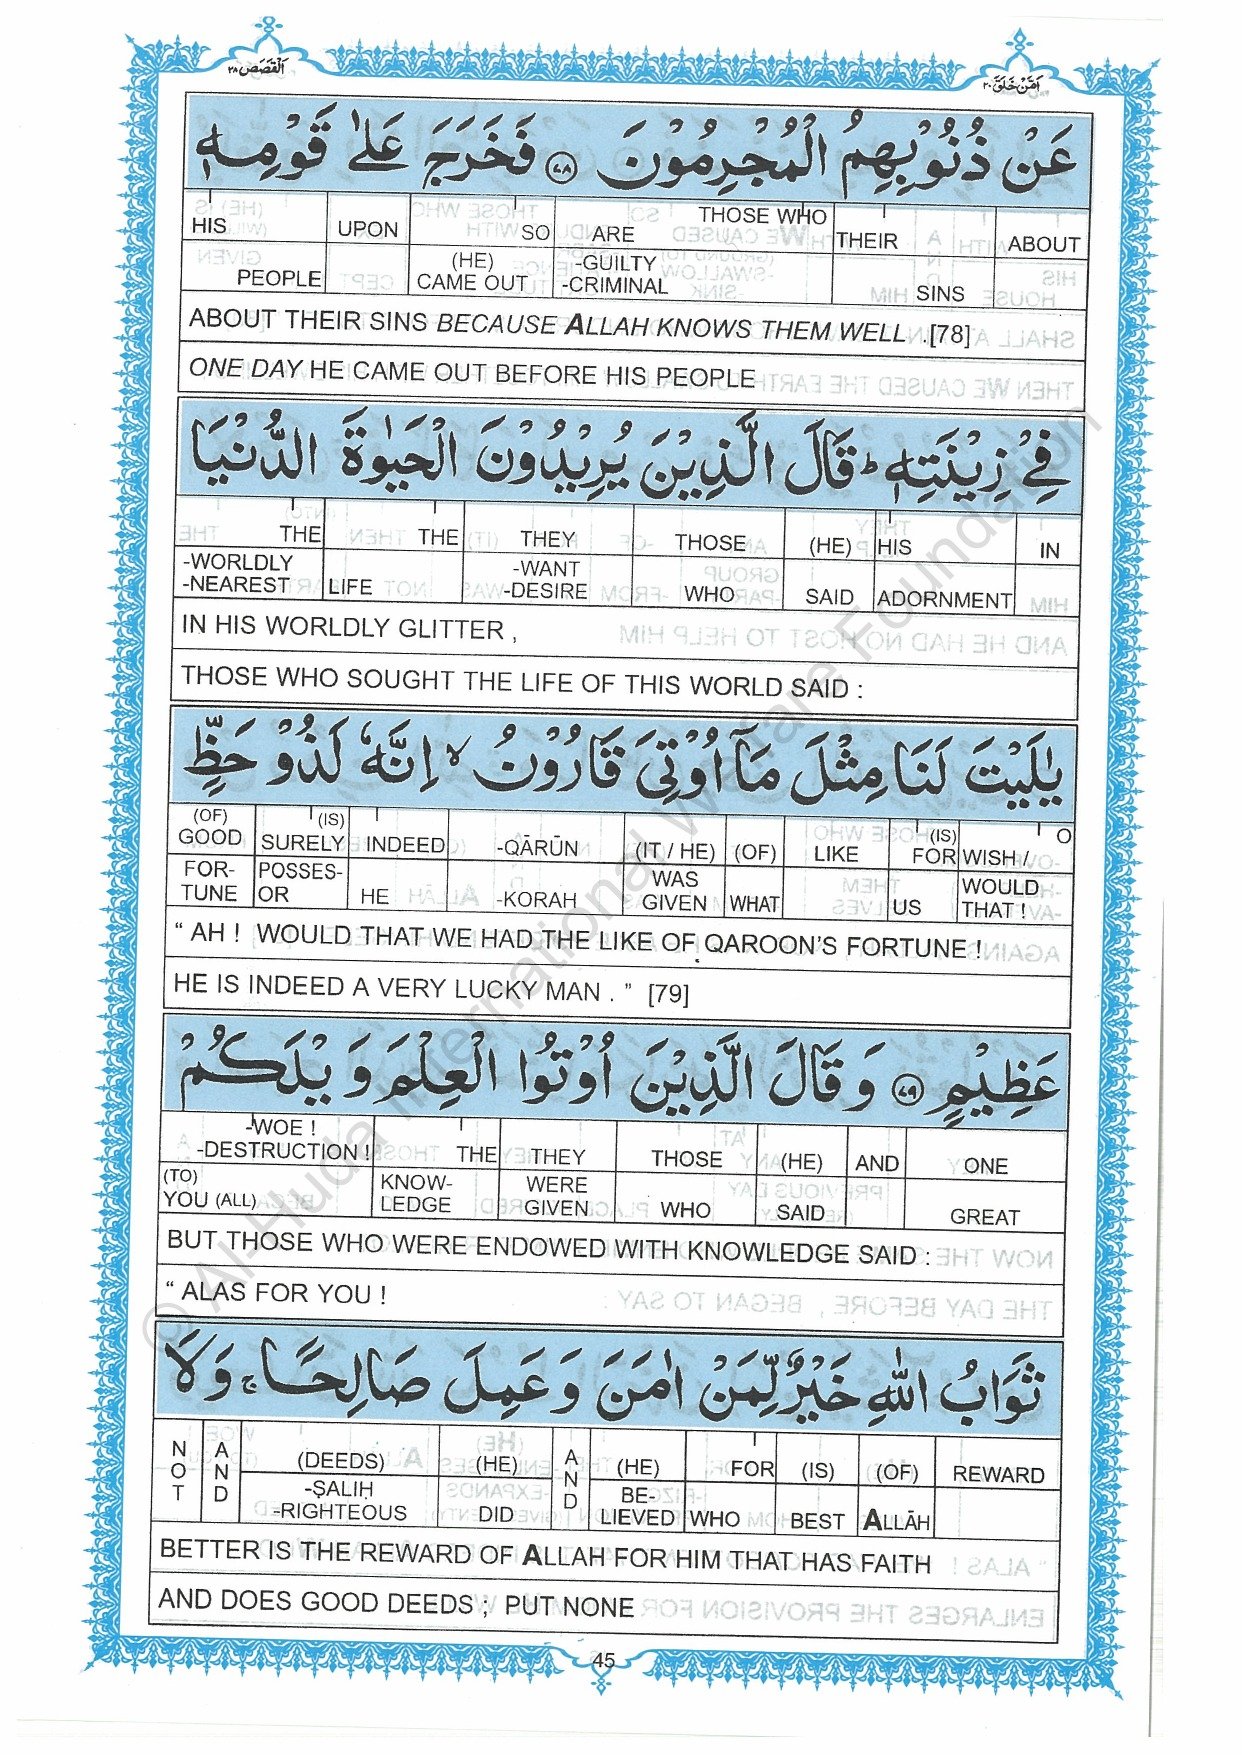 اَلْقَصَص ۲۸
اَمَّنْ خَلَقَ ۲۰
عَنْ ذُنُوْبِهِمُ الْمُجْرِمُوْنَ ﴿۷۸﴾ فَخَرَجَ عَلٰى قَوْمِهٖ
HIS UPON SO ARE THOSE WHO THEIR ABOUT
PEOPLE (HE) CAME OUT -GUILTY -CRIMINAL SINS
ABOUT THEIR SINS BECAUSE ALLAH KNOWS THEM WELL .[78]
ONE DAY HE CAME OUT BEFORE HIS PEOPLE
فِيْ زِيْنَتِهٖ ؕ قَالَ الَّذِيْنَ يُرِيْدُوْنَ الْحَيٰوةَ الدُّنْيَا
THE THE THEY THOSE (HE) HIS IN
-WORLDLY -NEAREST LIFE -WANT -DESIRE WHO SAID ADORNMENT
IN HIS WORLDLY GLITTER ,
THOSE WHO SOUGHT THE LIFE OF THIS WORLD SAID :
يٰلَيْتَ لَنَا مِثْلَ مَاۤ اُوْتِيَ قَارُوْنُ ۙ اِنَّهٗ لَذُوْ حَظٍّ
(OF) GOOD (IS) SURELY INDEED -QĀRŪN (IT / HE) (OF) LIKE (IS) FOR O WISH /
FOR- TUNE POSSES- OR HE -KORAH WAS GIVEN WHAT US WOULD THAT !
“ AH ! WOULD THAT WE HAD THE LIKE OF QAROON’S FORTUNE !
HE IS INDEED A VERY LUCKY MAN . ” [79]
عَظِيْمٍ ﴿۷۹﴾ وَ قَالَ الَّذِيْنَ اُوْتُوا الْعِلْمَ وَيْلَكُمْ
-WOE ! -DESTRUCTION ! THE THEY THOSE (HE) AND ONE
(TO) YOU (ALL) KNOW- LEDGE WERE GIVEN WHO SAID GREAT
BUT THOSE WHO WERE ENDOWED WITH KNOWLEDGE SAID :
“ ALAS FOR YOU !
ثَوَابُ اللّٰهِ خَيْرٌ لِّمَنْ اٰمَنَ وَ عَمِلَ صَالِحًا ۚ وَلَا
NOT AND (DEEDS) (HE) AND (HE) FOR (IS) (OF) REWARD
-ṢALIḤ -RIGHTEOUS DID BE- LIEVED WHO BEST ALLĀH
BETTER IS THE REWARD OF ALLAH FOR HIM THAT HAS FAITH
AND DOES GOOD DEEDS ; PUT NONE
45
© Al-Huda International Welfare Foundation